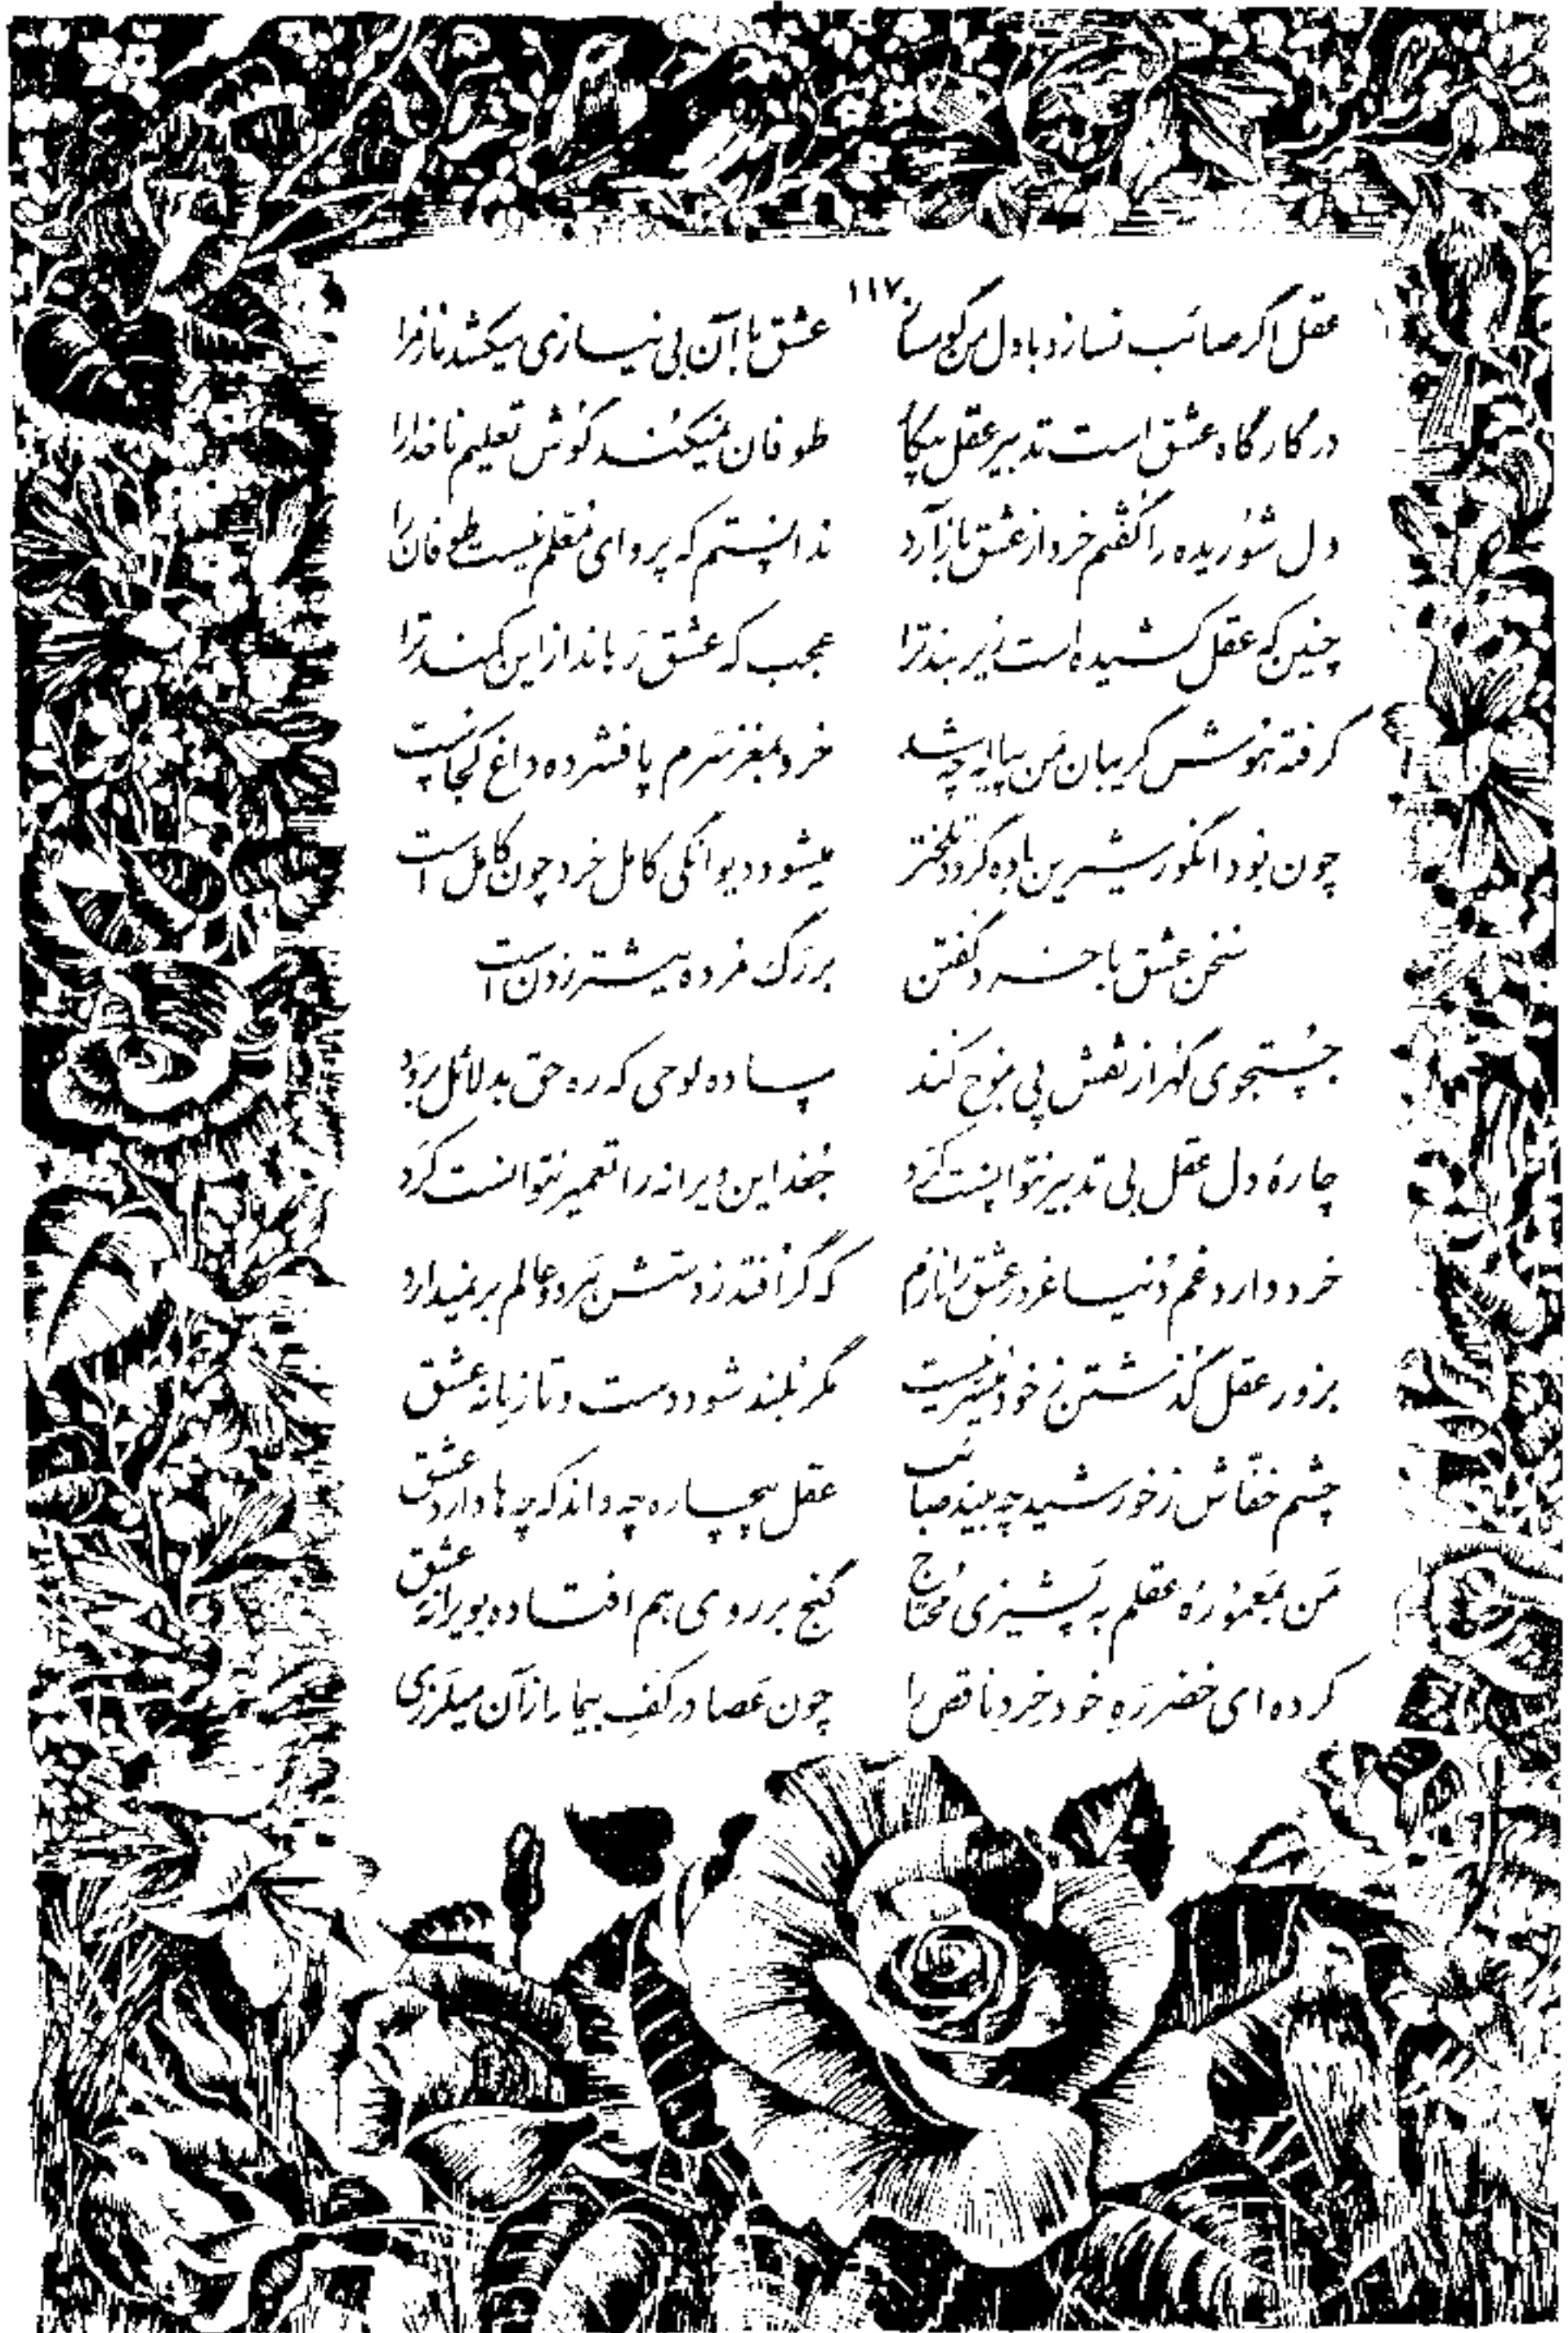 ۱۱۷
عقل اگر صائب نسازد با دل من گو مساز عشق با آن بی نیازی میکشد ناز مرا
در کارگاه عشق است تدبیر عقل بیکار طوفان نمیکند گوش تعلیم ناخدا را
دل شوریده را گفتم خرد از عشق باز آرد ندانستم که پروای معلم نیست طوفان را
چنین که عقل کشیده است زیر بند ترا عجب که عشق رهاند از این کمند ترا
گرفته هوش گریبان من پیاله چه شد خرد بمغز سرم پا فشرده داغ کجاست
چون بود انگور شیرین باده گردد تلختر میشود دیوانگی کامل خرد چون کامل است
سخن عشق با خرد گفتن بر رگ مرده نیشتر زدن است
جستجوی گهر از نقش پی موج کند ساده لوحی که ره حق بدلائل برود
چارهٔ دل عقل بی تدبیر نتوانست کرد جغد این ویرانه را تعمیر نتوانست کرد
خرد دارد غم دنیا غرور عشق را نازم که گر افتد ز دستش هر دو عالم بر نمیدارد
بزور عقل گذشتن ز خود میسر نیست مگر بلند شود دست و تازیانه عشق
چشم خفاش ز خورشید چه بیند صائب عقل بیچاره چه داند که چه ها دارد عشق
من بمعمورهٔ عقلم به پشیزی محتاج گنج بر روی هم افتاده بویرانه عشق
کرده ای خضر ره خود خرد ناقص را چون عصا در کف بیمار از آن میلرزی